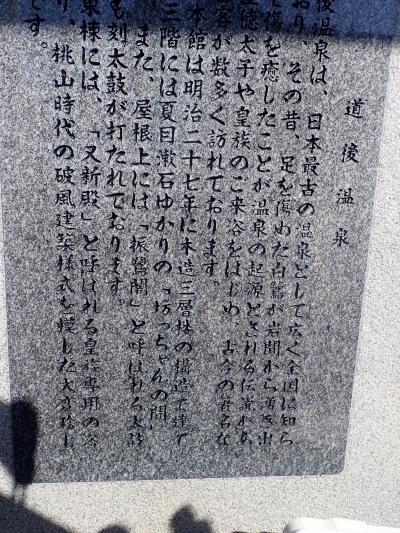 道後温泉
後温泉は、日本最古の温泉として広く全国に知ら
おり、その昔、足を傷めた白鷺が岩間から湧き出
て傷を癒したことが温泉の起源とされる伝説があ
聖徳太子や皇族のご来浴をはじめ、古今の著名な
客が数多く訪れております。
本館は明治二十七年に木造三層楼の構造で建て
三階には夏目漱石ゆかりの「坊っちゃんの間」
また、屋根上には「振鷺閣」と呼ばれる太鼓
も刻太鼓が打たれております。
東棟には、「又新殿」と呼ばれる皇族専用の浴
り、桃山時代の破風建築様式を模した大変珍し
です。